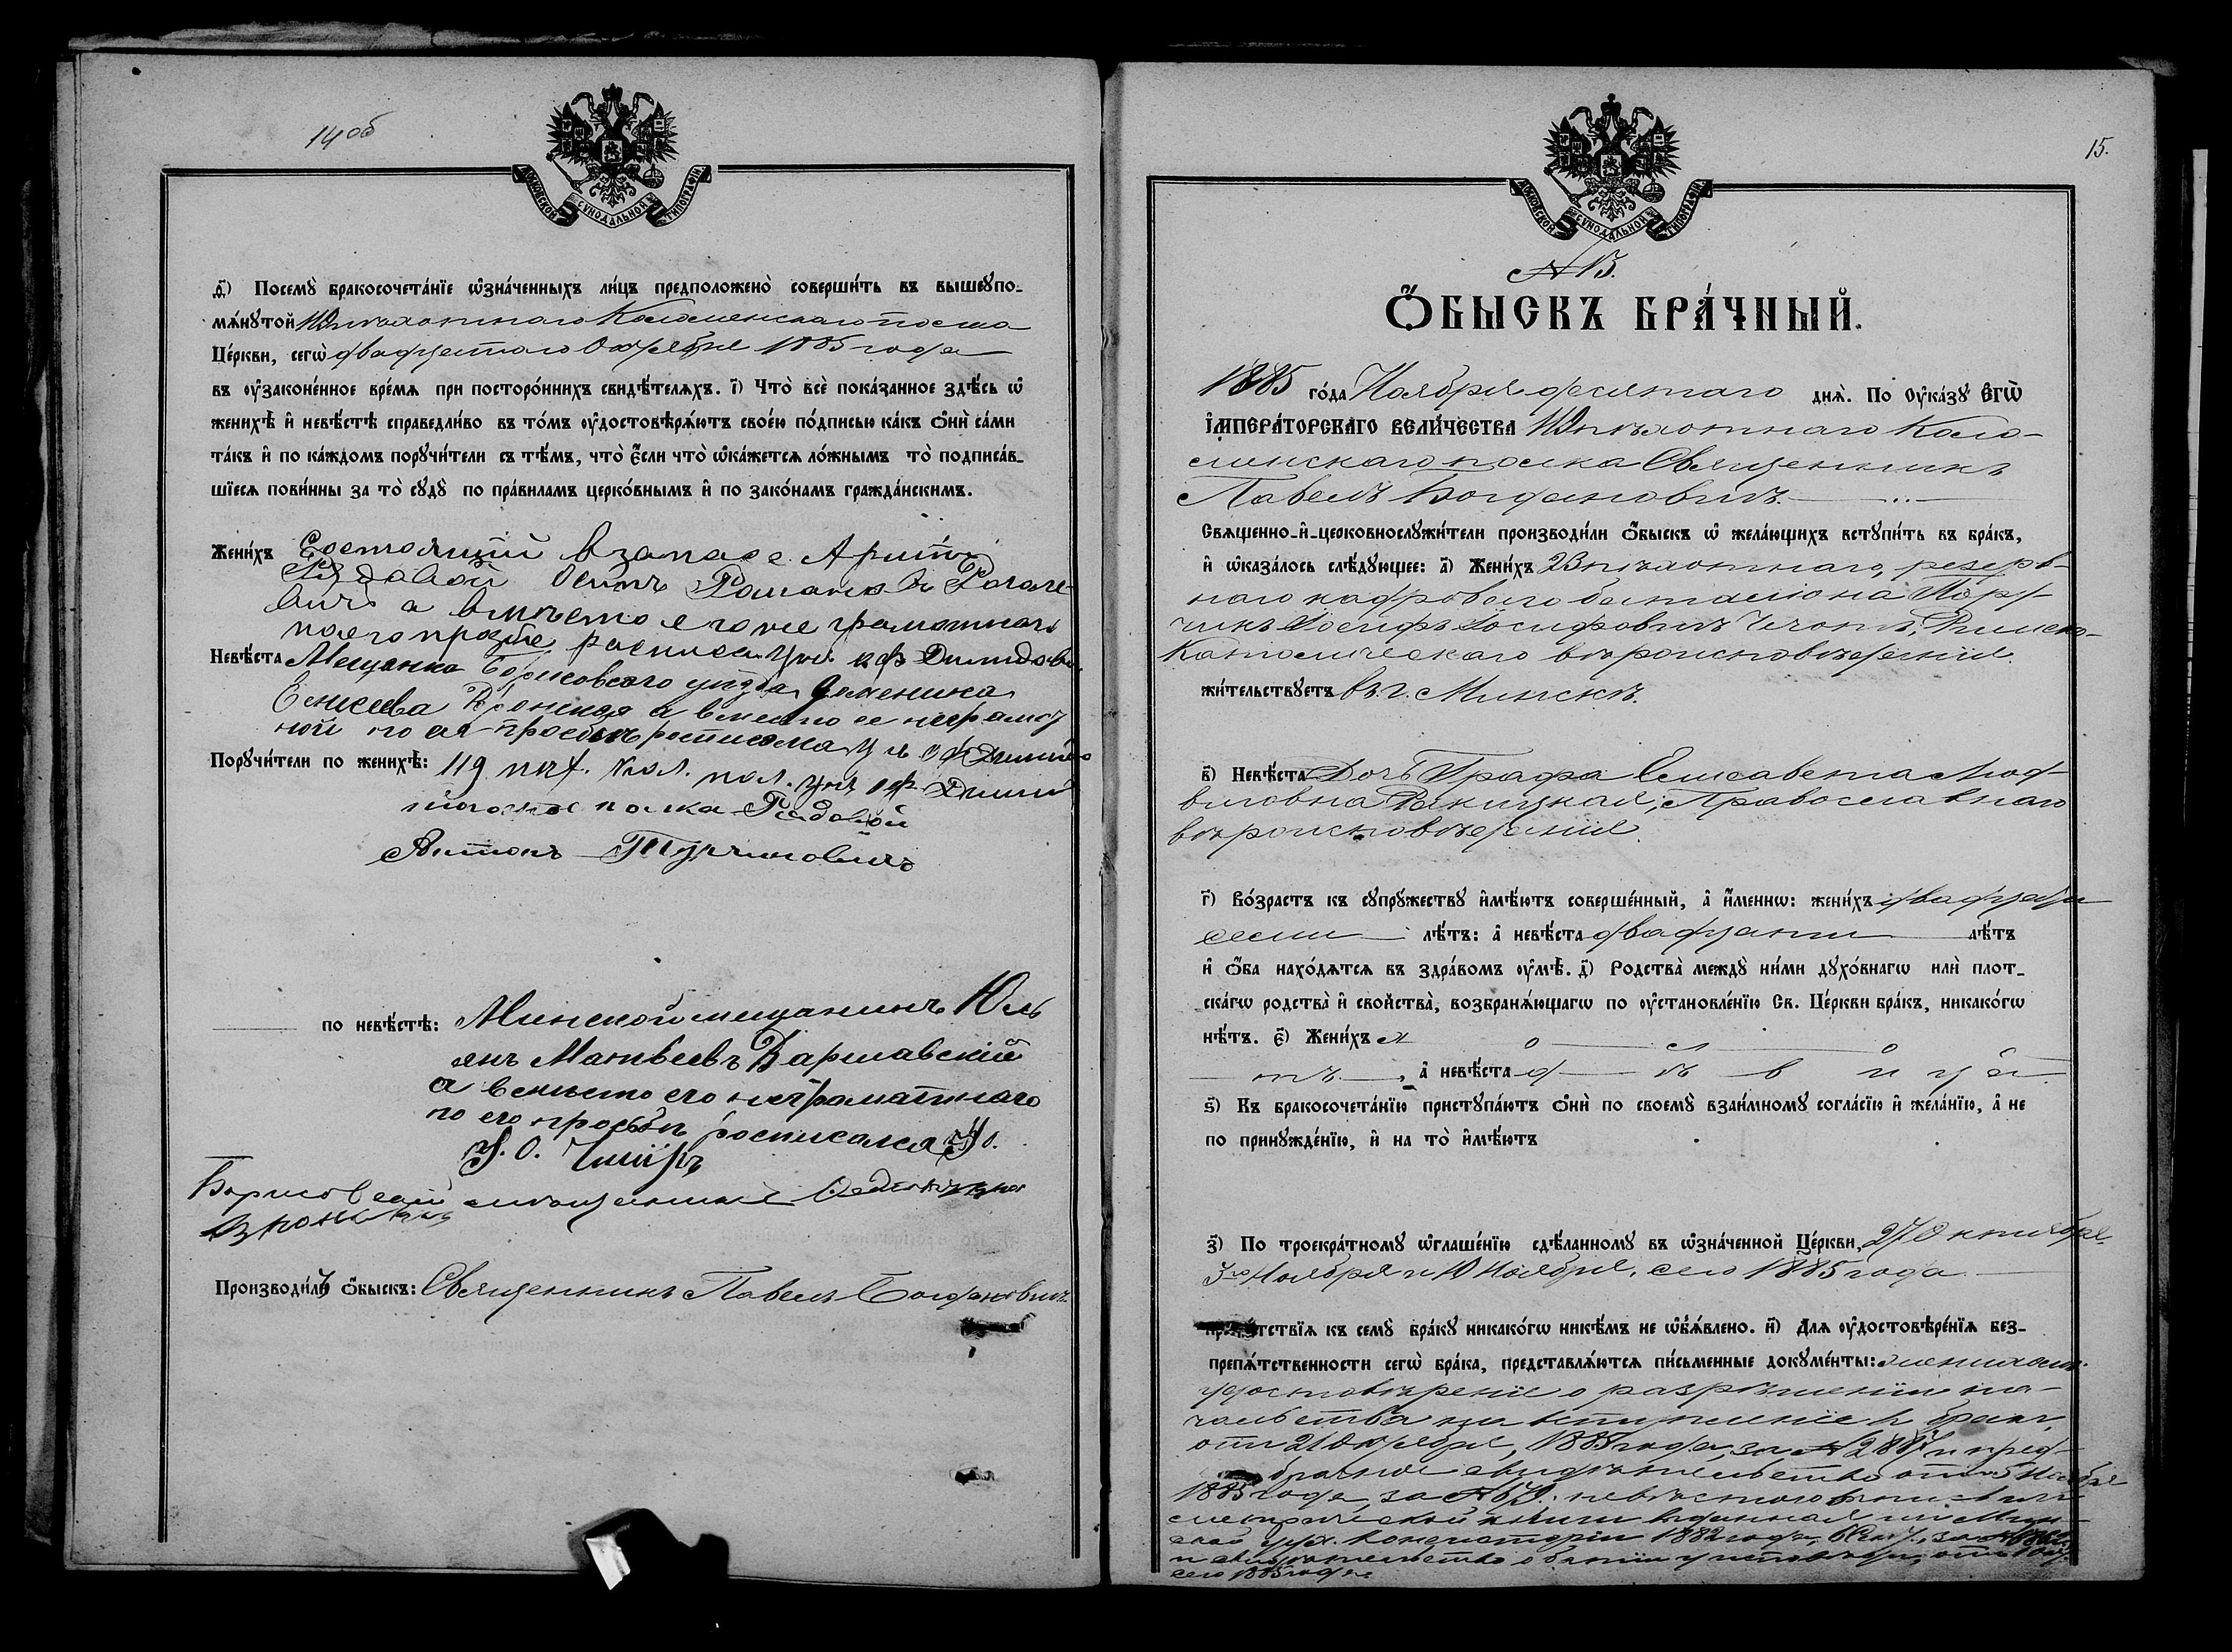 14 об
МОСКОВСКОЙ СѴНОДАЛЬНОЙ ТИПОГРАФІИ
ѳ҃) Посемꙋ̀ бракосочета́нїе ѡ҆зна́ченныхъ ли́цъ предположено̀ соверши́ть въ вышеꙋпо-
мѧ́нꙋтой 119 пѣхотнаго Коломенскаго полка
Це́ркви, сегѡ̀ двадцатаго Октября 1885 года
въ ᲂу҆законе́нное вре́мѧ при посторо́ннихъ свидѣ́телѧхъ. і҃) Что̀ всѐ пока́занное здѣ́сь ѡ҆
женихѣ̀ и҆ невѣ́стѣ справедли́во въ то́мъ ᲂу҆достовѣрѧ́ютъ свое́ю по́дписью ка́къ ѻ҆нѝ са́ми
та́къ и҆ по ка́ждомъ порꙋчи́тели съ тѣ́мъ, что̀ є҆́сли что̀ ѡ҆ка́жетсѧ ло́жнымъ то̀ подписа́в-
шїесѧ пови́нны за то̀ сꙋдꙋ̀ по пра́виламъ церко́внымъ и҆ по зако́намъ гражда́нскимъ.
Жени́хъ Состоящій в запасе Арміи
Рядовой Осипъ Романовъ
вичъ а вмѣсто его не грамотнаго
по его прозбе росписался
Невѣ́ста Мещанка Борисовского уѣзда Доменика
Елисеева а вместо ее неграмот
ной по ея просбѣ росписался
Порꙋчи́тели по женихѣ̀: 119 пѣх. Кол. пол.
полка Рядовой
Антонъ Турчиновичъ
по невѣ́стѣ: Минской мещанинъ Юль
янъ Матвеевъ Варшавскій
а вместо его неграматнаго
по его просбѣ росписался
Борисовскай
Производи́лъ ѻ҆́быскъ: Священникъ Павелъ Богдановичъ
15.
МОСКОВСКОЙ СѴНОДАЛЬНОЙ ТИПОГРАФІИ
№ 15.
Ѻ҆́БЫСКЪ БРА́ЧНЫЙ.
1885 го́да Ноября десятаго днѧ̀. По Оу҆ка́зꙋ Є҆гѡ̀
І҆мпера́торскаго Вели́чества 119 пѣхотнаго Коло-
менскаго полка Священникъ
Павелъ Богдановичъ.
Свѧщенно-и҆-церковнослꙋжи́тели производи́ли ѻ҆́быскъ ѡ҆ жела́ющихъ встꙋпи́ть въ бра́къ,
и҆ ѡ҆каза́лось слѣ́дꙋющее: а҃) Жени́хъ 23 пѣхотнаго, резерв-
наго кадроваго баталіона Пору-
чикъ Іосифъ Іосифовичъ Римско-
Католическаго вѣроисповѣданія.
жи́тельствꙋетъ въ г. Минскѣ.
в҃) Невѣ́ста Дочь Графа Елисавета Люд-
виговна Ракицкая, Православнаго
вѣроисповѣданія.
г҃) Во́зрастъ къ сꙋпрꙋ́жествꙋ и҆мѣ́ютъ соверше́нный, а҆ и҆́меннѡ: жени́хъ двадцати
семи лѣ́тъ: а҆ невѣ́ста двадцати лѣ́тъ
и҆ ѻ҆́ба нахо́дѧтсѧ въ здра́вомъ ᲂу҆мѣ̀. д҃) Родства̀ междꙋ̀ ни́ми дꙋхо́внагѡ илѝ плот-
ска́гѡ родства̀ и҆ свойства̀, возбранѧ́ющагѡ по ᲂу҆становле́нїю Св. Це́ркви бра́къ, никако́гѡ
нѣ́тъ. є҃) Жени́хъ х о л о с
тъ, а҆ невѣ́ста д ѣ в и ц а.
ѕ҃) Къ бракосочета́нїю пристꙋпа́ютъ ѻ҆нѝ по своемꙋ̀ взаи́мномꙋ согла́сїю и҆ жела́нїю, а҆ не
по принꙋжде́нїю, и҆ на то̀ и҆мѣ́ютъ
з҃) По троекра́тномꙋ ѡ҆глаше́нїю сдѣ́ланномꙋ въ ѡ҆зна́ченной Це́ркви, 27 Октября,
3го Ноября и 10 Ноября, сего 1885 года
препѧ́тствїѧ къ семꙋ̀ бра́кꙋ никако́гѡ никѣ́мъ не ѡ҆б̾ѧ́влено. и҃) Длѧ ᲂу҆достовѣре́нїѧ без-
препѧ́тственности сегѡ̀ бра́ка, представлѧ́ютсѧ пи́сьменные докꙋме́нты: женихомъ
удостовѣреніе о разрѣшеніи на-
чальства на вступленіе въ бракъ,
отъ 21 Октября, 1885 года, за № 2887 и пред-
брачное свидѣтельство отъ 5 Ноября
1885 года, за № невѣстою
метрической выданная изъ Мин-
ской дух. Консисторіи 1882 года,
и свидѣтельство о бытіи у исповѣди,
сего 1885 года